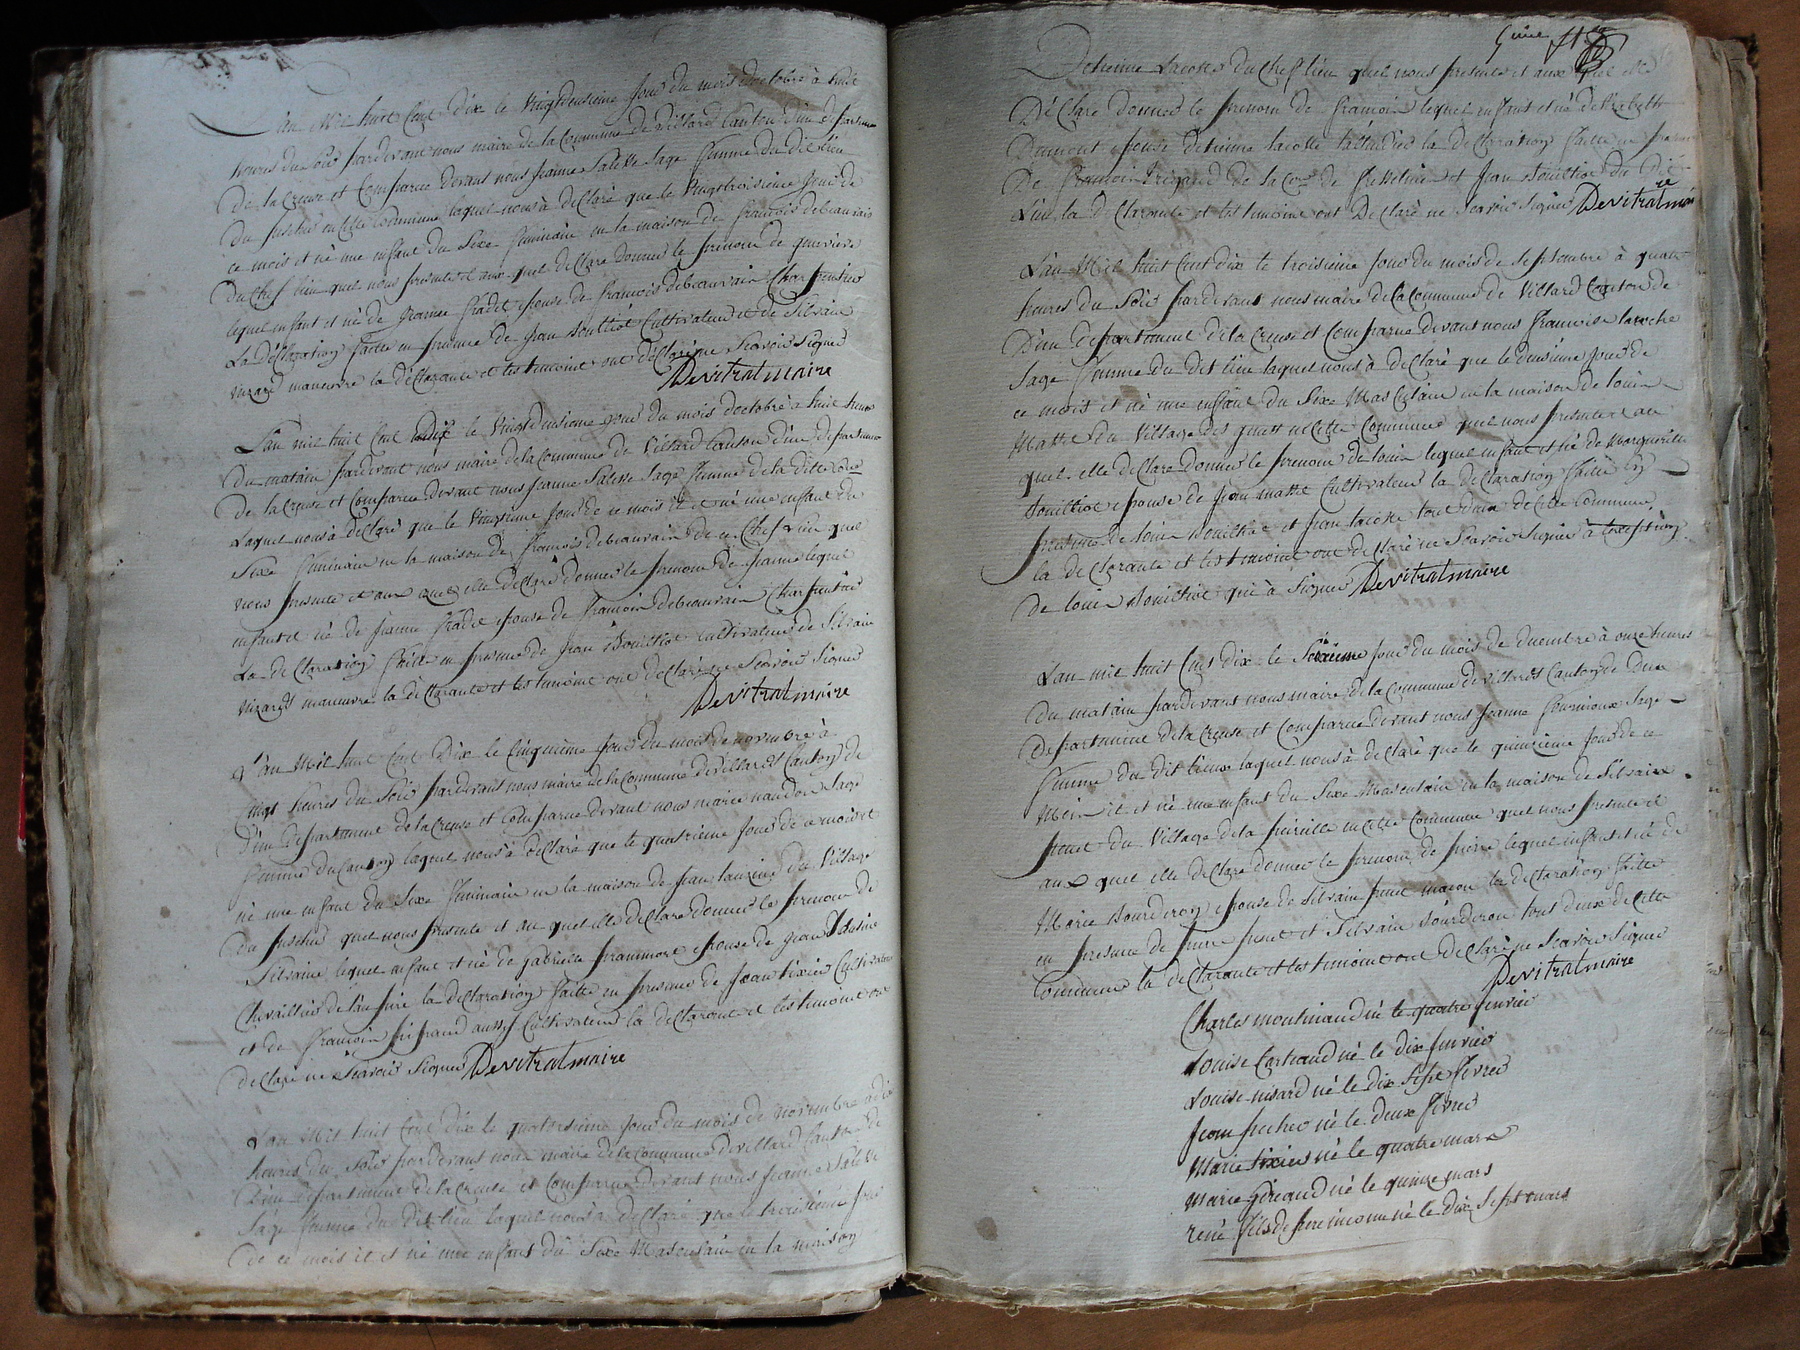 L'an Mil huit Cent Dix le Vingtdeusieme Jour du mois doctobre à huit
heures du Soir pardevant nous maire de la Commune de Villard Canton Dun departement
De la Creuse et Comparue devant nous Jeanne Salesse Sage femme du dit lieu
Du en Cette Commune laquel nous à déClaré que le Vingttroisieme Jour de
ce mois et né une enfant du Sixe feminain en la maison de francois debeauvais
du Chef lieu quel nous presente et aux quel déClare donner le prenom de
lequel enfant et né de Jeanne pradel epouse de francois debeauvain Charpentier
La déClaration faitte en presence de Jean Bouilliot Cultivateur et de Silvain
nizard maneuvre la déClarante et les temoint ont déClaré ne Scavoir Signer
Devitrat maire
L'an mil huit Cent dix le Vingtdeusieme Jour du mois doctobre à huit heures
du matain pardevant nous maire de la Commune de Villard Canton Dun departement
De la Creuse et Comparue devant nous Jeanne Salesse Sage femme de la ditte
Laquel nous à déClaré que le Vingtieme Jour de ce mois il et né une enfant du
Sixe feminain en la maison de francois debeauvain de ce Chef lieu quel
nous presente et aux quel elle déClare donner le prenom de Jeanne lequel
enfant et né de Jeanne pradel epouse de francois debeauvain Charpentier
La déClaration faitte en presence de Jean Bouilliot Cultivateur et de Silvain
nizard maneuvre la déClarante et les temoint ont déClaré ne Scavoir Signer
Devitrat maire
L'an Mil huit Cent Dix le Cinquieme Jour du mois de novembre à
Cinqs heures du Soir pardevant nous maire de la Commune de Villard Canton de
Dun departement de la Creuse et Comparue devant nous marie naudon Sage
femme du Canton laquel nous à déClaré que le quatrieme Jour de ce mois et
né une enfant du Sixe feminain en la maison de Jean laurent du Village
du quel nous presente et au quel elle déClare donner le prenom de
Silvaine lequel enfant et né de gabrielle epouse de Jean
la déClaration faitte en presence de Jean tixier Cultivateur
et de francois aussy Cultivateur la déClarante et les temoint ont
déClaré ne Scavoir Signer Devitrat maire
L'an Mil huit Cent dix le quatorsieme Jour du mois de novembre à dix
heures du Soir pardevant nous maire de la Commune de Villard Canton de
Dun departement de la Creuse et Comparue devant nous Jeanne Salesse
Sage femme du dit lieu laquel nous à déClaré que le troisieme Jour
de ce mois il et né une enfant du Sixe Masculain en la maison
Detienne lacotte du Chef lieu quel nous presente et aux quel elle
DéClare donner le prenom de francois lequel enfant et né delizabette
Dumont epouse detienne lacotte la déClaration faitte en presence
De francois de la Cne de et Jean Bouilliot du dit
Lieu la déClarante et les temoint ont DéClaré ne Scavoir Signer Devitrat maire
L'an Mil huit Cent dix le troisieme Jour du mois de Septembre à quatre
heures du Soir pardevant nous maire de la Commune de Villard Canton de
Dun departement de la Creuse et Comparue devant nous francoise laroche
Sage femme du dit lieu laquel nous à déClaré que le deusieme Jour de
ce mois et né une enfant du Sixe Masculain en la maison de louin
Matte du Village des en Cette Commune quel nous presente et au
quel elle déClare donner le prenom de louin lequel enfant et né de Marguerite
Bouilliot epouse de Jean matte Cultivateur la déClaration faitte en
presence de louin Bouilliot et Jean lacotte tout deux de Cette Commune
la déClarante et les temoint ont déClaré ne Scavoir Signer à lexception
de louin Bouilliot qui à Signer Devitrat maire
L'an mil huit Cent dix le Jour du mois de decembre à onze heures
du matain pardevant nous maire de la Commune de Villard Canton de Dun
departement de la Creuse et Comparue devant nous Jeanne fournioux Sage
femme du dit lieux laquel nous à déClaré que le quinzieme Jour de ce
Mois il et né une enfant du Sixe Masculain en la maison de Silvain
du Village de la en Cette Commune quel nous presente et
aux quel elle déClare donner le prenom de pierre lequel enfant et né de
Marie Bourderon epouse de Silvain macon la déClaration faitte
en presence de et Silvain Bourderon tout deux de Cette
Commune la déClarante et les temoint ont déClaré ne Scavoir Signer
Devitrat maire
Charles moulinaud né le quatre fevrier
Louise né le dix fevrier
Louise nisard né le dix Sept fevrier
Jean né le deux fevrier
Marie tixier né le quatre mars
Marie né le quinze mars
rené fils de pere inconnu né le dix Sept mars